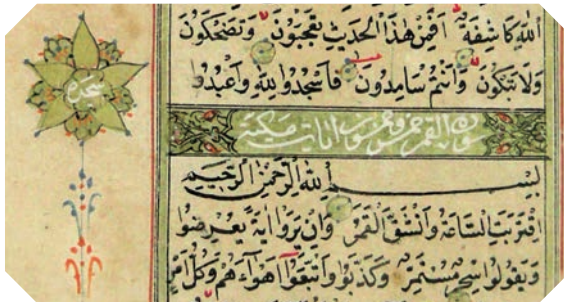 اللّٰهِ كَاشِفَةٌ اَفَمِنْ هٰذَا الْحَدِيثِ تَعْجَبُونَ وَتَضْحَكُونَ
وَلَا تَبْكُونَ وَاَنْتُمْ سَامِدُونَ فَاسْجُدُوا لِلّٰهِ وَاعْبُدُوا
سجده
سورة القمر خمس وخمسون ايات مكية
بِسْمِ اللّٰهِ الرَّحْمٰنِ الرَّحِيمِ
اِقْتَرَبَتِ السَّاعَةُ وَانْشَقَّ الْقَمَرُ وَاِنْ يَرَوْا اٰيَةً يُعْرِضُوا
وَيَقُولُوا سِحْرٌ مُسْتَمِرٌّ وَكَذَّبُوا وَاتَّبَعُوا اَهْوَاءَهُمْ وَكُلُّ اَمْرٍ